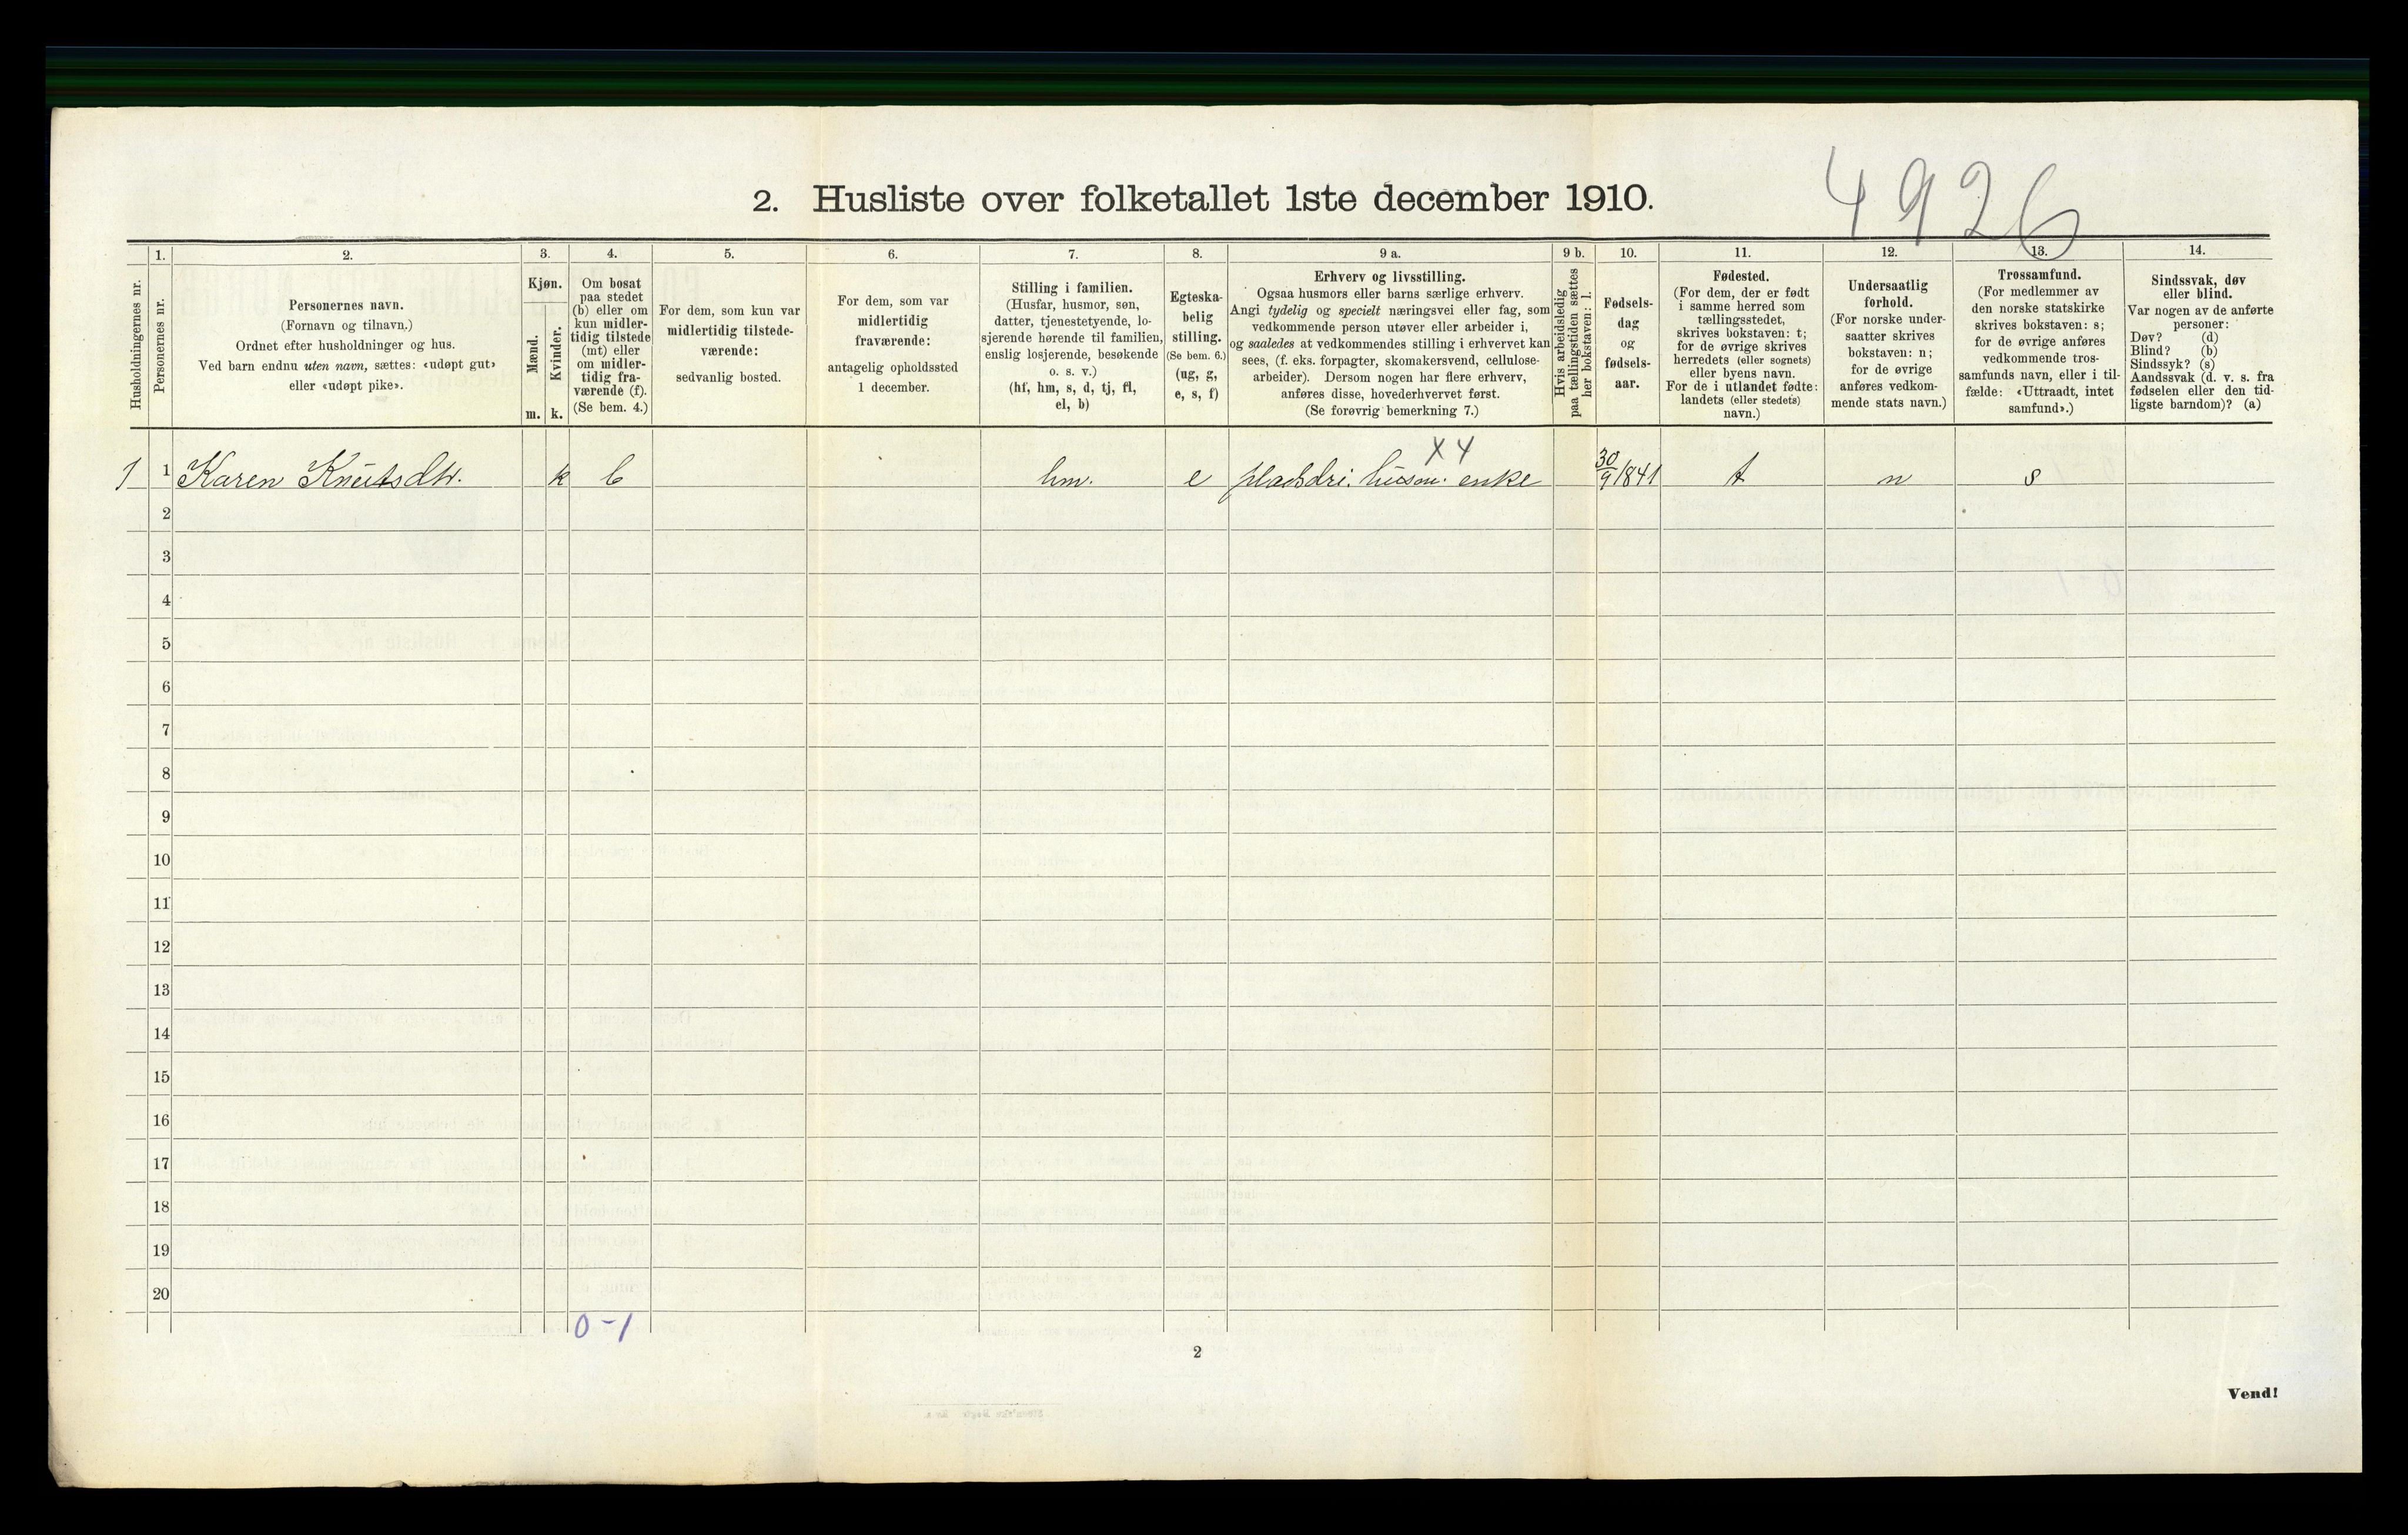 4926
2. Husliste over folketallet 1ste december 1910.
Husholdningernes nr.
1.
Personernes nr.
2.
Personernes navn.
(Fornavn og tilnavn.)
Ordnet efter husholdninger og hus.
Ved barn endnu uten navn, sættes: «udøpt gut»
eller «udøpt pike».
3.
Kjøn.
Mænd.
Kvinder.
m. k.
4.
Om bosat
paa stedet
(b) eller om
kun midler-
tidig tilstede
(mt) eller
om midler-
tidig fra-
værende (f).
(Se bem. 4.)
5.
For dem, som kun var
midlertidig tilstede-
værende:
sedvanlig bosted.
6.
For dem, som var
midlertidig
fraværende:
antagelig opholdssted
1 december.
7.
Stilling i familien.
(Husfar, husmor, søn,
datter, tjenestetyende, lo-
sjerende hørende til familien,
enslig losjerende, besøkende
o. s. v.)
(hf, hm, s, d, tj, fl,
el, b)
8.
Egteska-
belig
stilling.
(Se bem. 6.)
(ug, g,
e, s, f)
9 a.
Erhverv og livsstilling.
Ogsaa husmors eller barns særlige erhverv.
Angi tydelig og specielt næringsvei eller fag, som
vedkommende person utøver eller arbeider i,
og saaledes at vedkommendes stilling i erhvervet kan
sees, (f. eks. forpagter, skomakersvend, cellulose-
arbeider). Dersom nogen har flere erhverv,
anføres disse, hovederhvervet først.
(Se forøvrig bemerkning 7.)
9 b.
Hvis arbeidsledig
paa tællingstiden sættes
her bokstaven: l.
10.
Fødsels-
dag
og
fødsels-
aar.
11.
Fødested.
(For dem, der er født
i samme herred som
tællingsstedet,
skrives bokstaven: t;
for de øvrige skrives
herredets (eller sognets)
eller byens navn.
For de i utlandet fødte:
landets (eller stedets)
navn.)
12.
Undersaatlig
forhold.
(For norske under-
saatter skrives
bokstaven: n;
for de øvrige
anføres vedkom-
mende stats navn.)
13.
Trossamfund.
(For medlemmer av
den norske statskirke
skrives bokstaven: s;
for de øvrige anføres
vedkommende tros-
samfunds navn, eller i til-
fælde: «Uttraadt, intet
samfund».)
14.
Sindssvak, døv
eller blind.
Var nogen av de anførte
personer:
Døv? (d)
Blind? (b)
Sindssyk? (s)
Aandssvak (d. v. s. fra
fødselen eller den tid-
ligste barndom)? (a)
X 4
1 1 Karen Knutsdtr. k b hm. e pladsdri. husm. enke 30/9 1841 t n s
2
3
4
5
6
7
8
9
10
11
12
13
14
15
16
17
18
19
20
0-1
2
Vend!